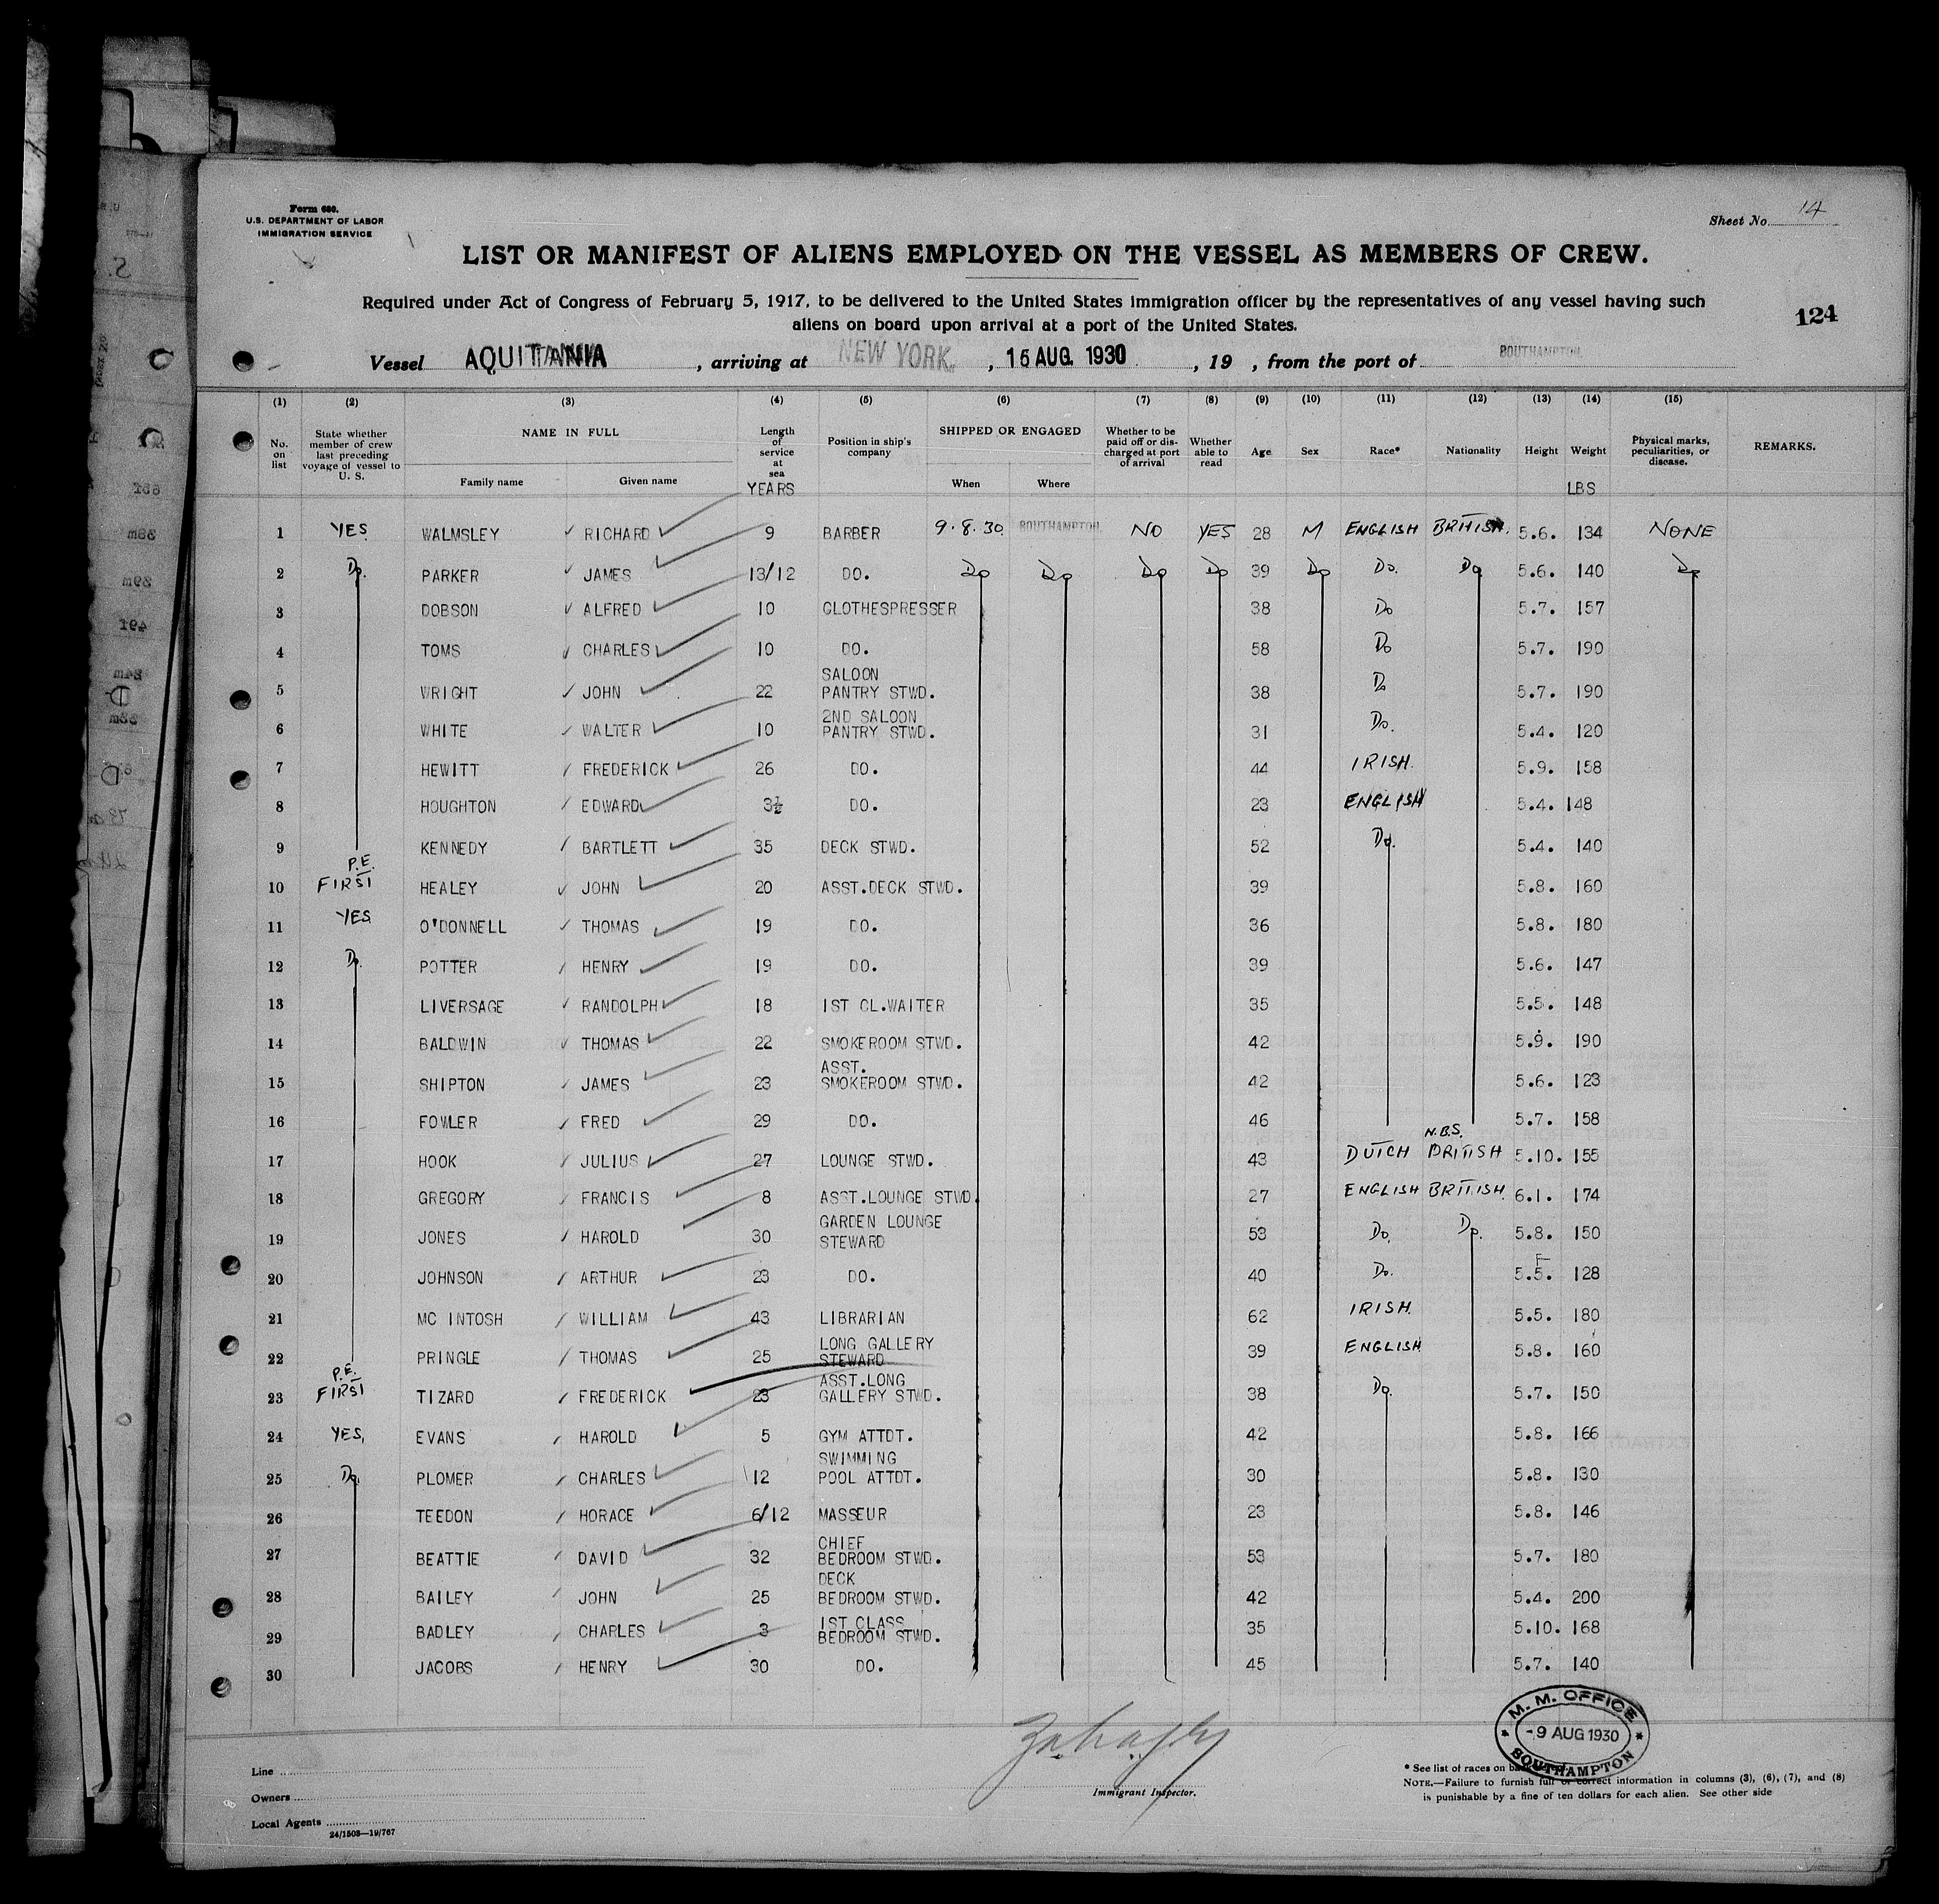 Form 680.
U.S. DEPARTMENT OF LABOR
IMMIGRATION SERVICE
Sheet No. 14
LIST OR MANIFEST OF ALIENS EMPLOYED ON THE VESSEL AS MEMBERS OF CREW.
Required under Act of Congress of February 5, 1917, to be delivered to the United States immigration officer by the representatives of any vessel having such
aliens on board upon arrival at a port of the United States.
124
Vessel AQUITANIA, arriving at NEW YORK., 15 AUG. 1930, 19 , from the port of SOUTHAMPTON.
(1) (2) (3) (4) (5) (6) (7) (8) (9) (10) (11) (12) (13) (14) (15)
No. on list State whether member of crew last preceding voyage of vessel to U. S. NAME IN FULL Family name Given name Length of service at sea YEARS Position in ship's company SHIPPED OR ENGAGED When Where Whether to be paid off or discharged at port of arrival Whether able to read Age Sex Race* Nationality Height Weight LBS Physical marks, peculiarities, or disease. REMARKS.
1 YES WALMSLEY RICHARD 9 BARBER 9.8.30. SOUTHAMPTON. NO YES 28 M ENGLISH BRITISH. 5.6. 134 NONE
2 Do. PARKER JAMES 13/12 DO. Do Do Do Do 39 Do Do. Do 5.6. 140 Do
3 DOBSON ALFRED 10 CLOTHESPRESSER 38 Do 5.7. 157
4 TOMS CHARLES 10 DO. 58 Do 5.7. 190
5 WRIGHT JOHN 22 SALOON PANTRY STWD. 38 Do 5.7. 190
6 WHITE WALTER 10 2ND SALOON PANTRY STWD. 31 Do. 5.4. 120
7 HEWITT FREDERICK 26 DO. 44 IRISH. 5.9. 158
8 HOUGHTON EDWARD 3½ DO. 23 ENGLISH 5.4. 148
9 KENNEDY BARTLETT 35 DECK STWD. 52 Do. 5.4. 140
10 P.E. FIRST HEALEY JOHN 20 ASST.DECK STWD. 39 5.8. 160
11 YES O'DONNELL THOMAS 19 DO. 36 5.8. 180
12 Do. POTTER HENRY 19 DO. 39 5.6. 147
13 LIVERSAGE RANDOLPH 18 1ST CL.WAITER 35 5.5. 148
14 BALDWIN THOMAS 22 SMOKEROOM STWD. 42 5.9. 190
15 SHIPTON JAMES 23 ASST. SMOKEROOM STWD. 42 5.6. 123
16 FOWLER FRED 29 DO. 46 5.7. 158
17 HOOK JULIUS 27 LOUNGE STWD. 43 DUTCH N.B.S. BRITISH 5.10. 155
18 GREGORY FRANCIS 8 ASST.LOUNGE STWD. 27 ENGLISH BRITISH. 6.1. 174
19 JONES HAROLD 30 GARDEN LOUNGE STEWARD 53 Do. Do. 5.8. 150
20 JOHNSON ARTHUR 23 DO. 40 Do. 5.5. 128
21 MC INTOSH WILLIAM 43 LIBRARIAN 62 IRISH. 5.5. 180
22 PRINGLE THOMAS 25 LONG GALLERY STEWARD 39 ENGLISH 5.8. 160
23 P.E. FIRST TIZARD FREDERICK 23 ASST.LONG GALLERY STWD. 38 Do. 5.7. 150
24 YES, EVANS HAROLD 5 GYM ATTDT. 42 5.8. 166
25 Do. PLOMER CHARLES 12 SWIMMING POOL ATTDT. 30 5.8. 130
26 TEEDON HORACE 6/12 MASSEUR 23 5.8. 146
27 BEATTIE DAVID 32 CHIEF BEDROOM STWD. 53 5.7. 180
28 BAILEY JOHN 25 DECK BEDROOM STWD. 42 5.4. 200
29 BADLEY CHARLES 3 1ST CLASS BEDROOM STWD. 35 5.10. 168
30 JACOBS HENRY 30 DO. 45 5.7. 140
M. M. OFFICE
-9 AUG 1930
SOUTHAMPTON
Line
Owners
Local Agents
24/1503—19/767
Immigrant Inspector.
* See list of races on
NOTE.—Failure to furnish full or correct information in columns (3), (6), (7), and (8)
is punishable by a fine of ten dollars for each alien. See other side